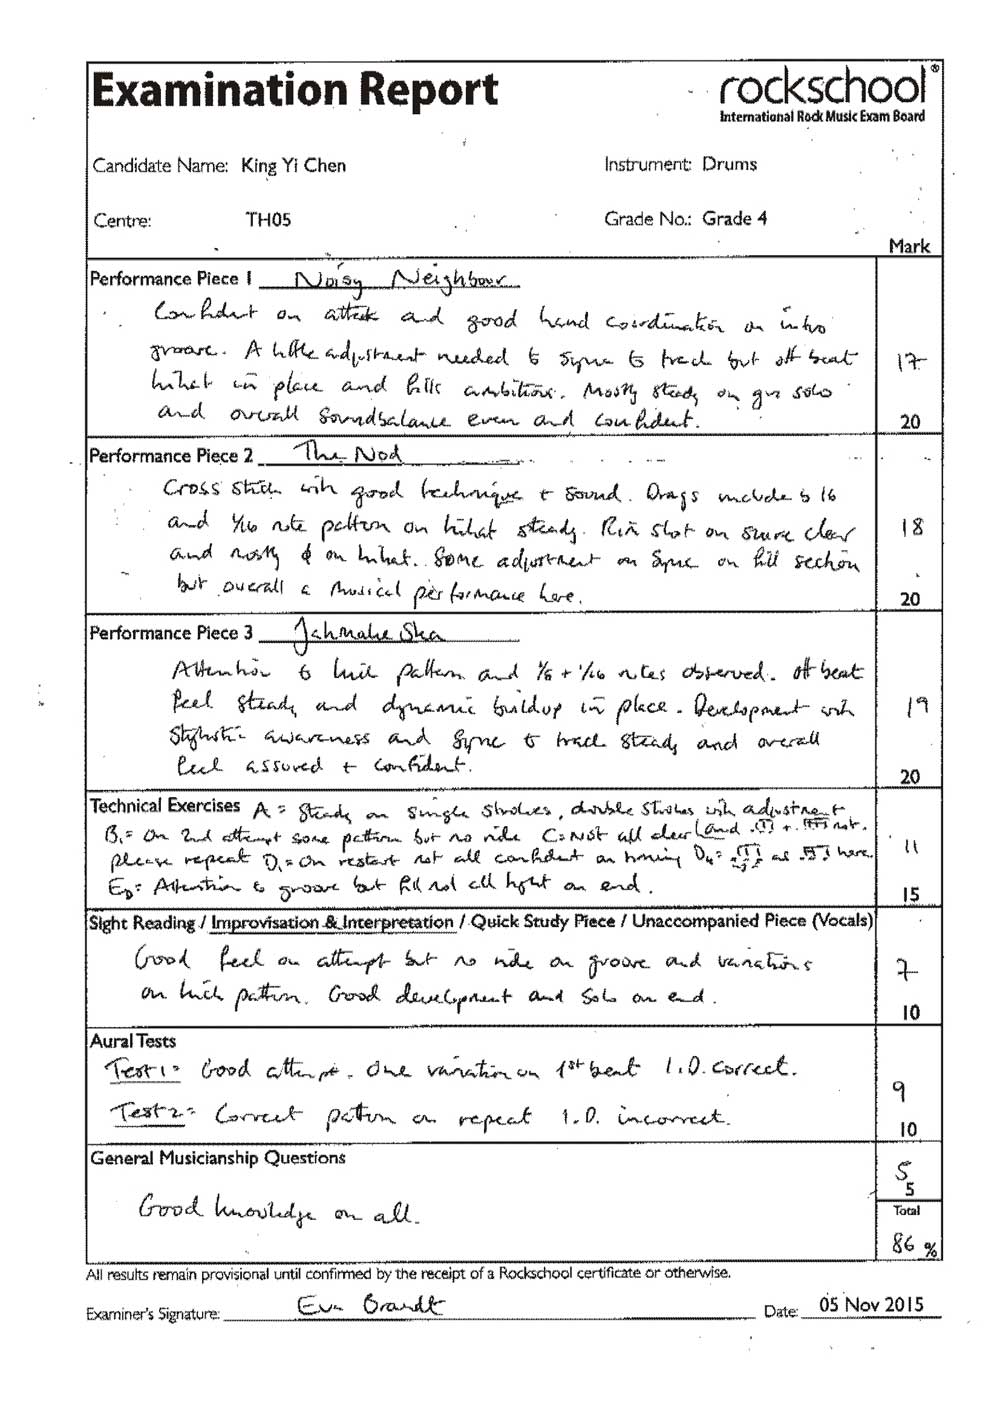 Examination Report
rockschool®
International Rock Music Exam Board
Candidate Name: King Yi Chen
Instrument: Drums
Centre: TH05
Grade No.: Grade 4
Mark
Performance Piece 1 Noisy Neighbour
Confident on attack and good hand coordination on intro
groove. A little adjustment needed to sync to track but off beat
hihat in place and fills ambitious. Mostly steady on solo
and overall soundbalance even and confident.
17
20
Performance Piece 2 The Nod
Cross stick with good technique + sound. Drags include 16
and 1/16 note pattern on hihat steady. Rim shot on snare clear
and mostly on hihat. Some adjustment on sync on fill section
but overall a musical performance here.
18
20
Performance Piece 3 Jahmake Ska
Attention to kick pattern and 1/8 + 1/16 notes observed. Off beat
feel steady and dynamic buildup in place. Development with
stylistic awareness and sync to track steady and overall
feel assured + confident.
19
20
Technical Exercises A = Steady on single strokes, double strokes with adjustment
B = On 2nd attempt some pattern but no ride C = Not all clear and + not.
please repeat D = On restart not all confident on as here.
E = Attention to groove but fill not all tight on end.
11
15
Sight Reading / Improvisation & Interpretation / Quick Study Piece / Unaccompanied Piece (Vocals)
Good feel on attempt but no ride on groove and variations
on kick pattern. Good development and solo on end.
7
10
Aural Tests
Test 1 = Good attempt. One variation on 1st beat I.D. correct.
Test 2 = Correct pattern on repeat I.D. incorrect.
9
10
General Musicianship Questions
Good knowledge on all.
5
5
Total
86 %
All results remain provisional until confirmed by the receipt of a Rockschool certificate or otherwise.
Examiner's Signature: Eva Brandt
Date: 05 Nov 2015